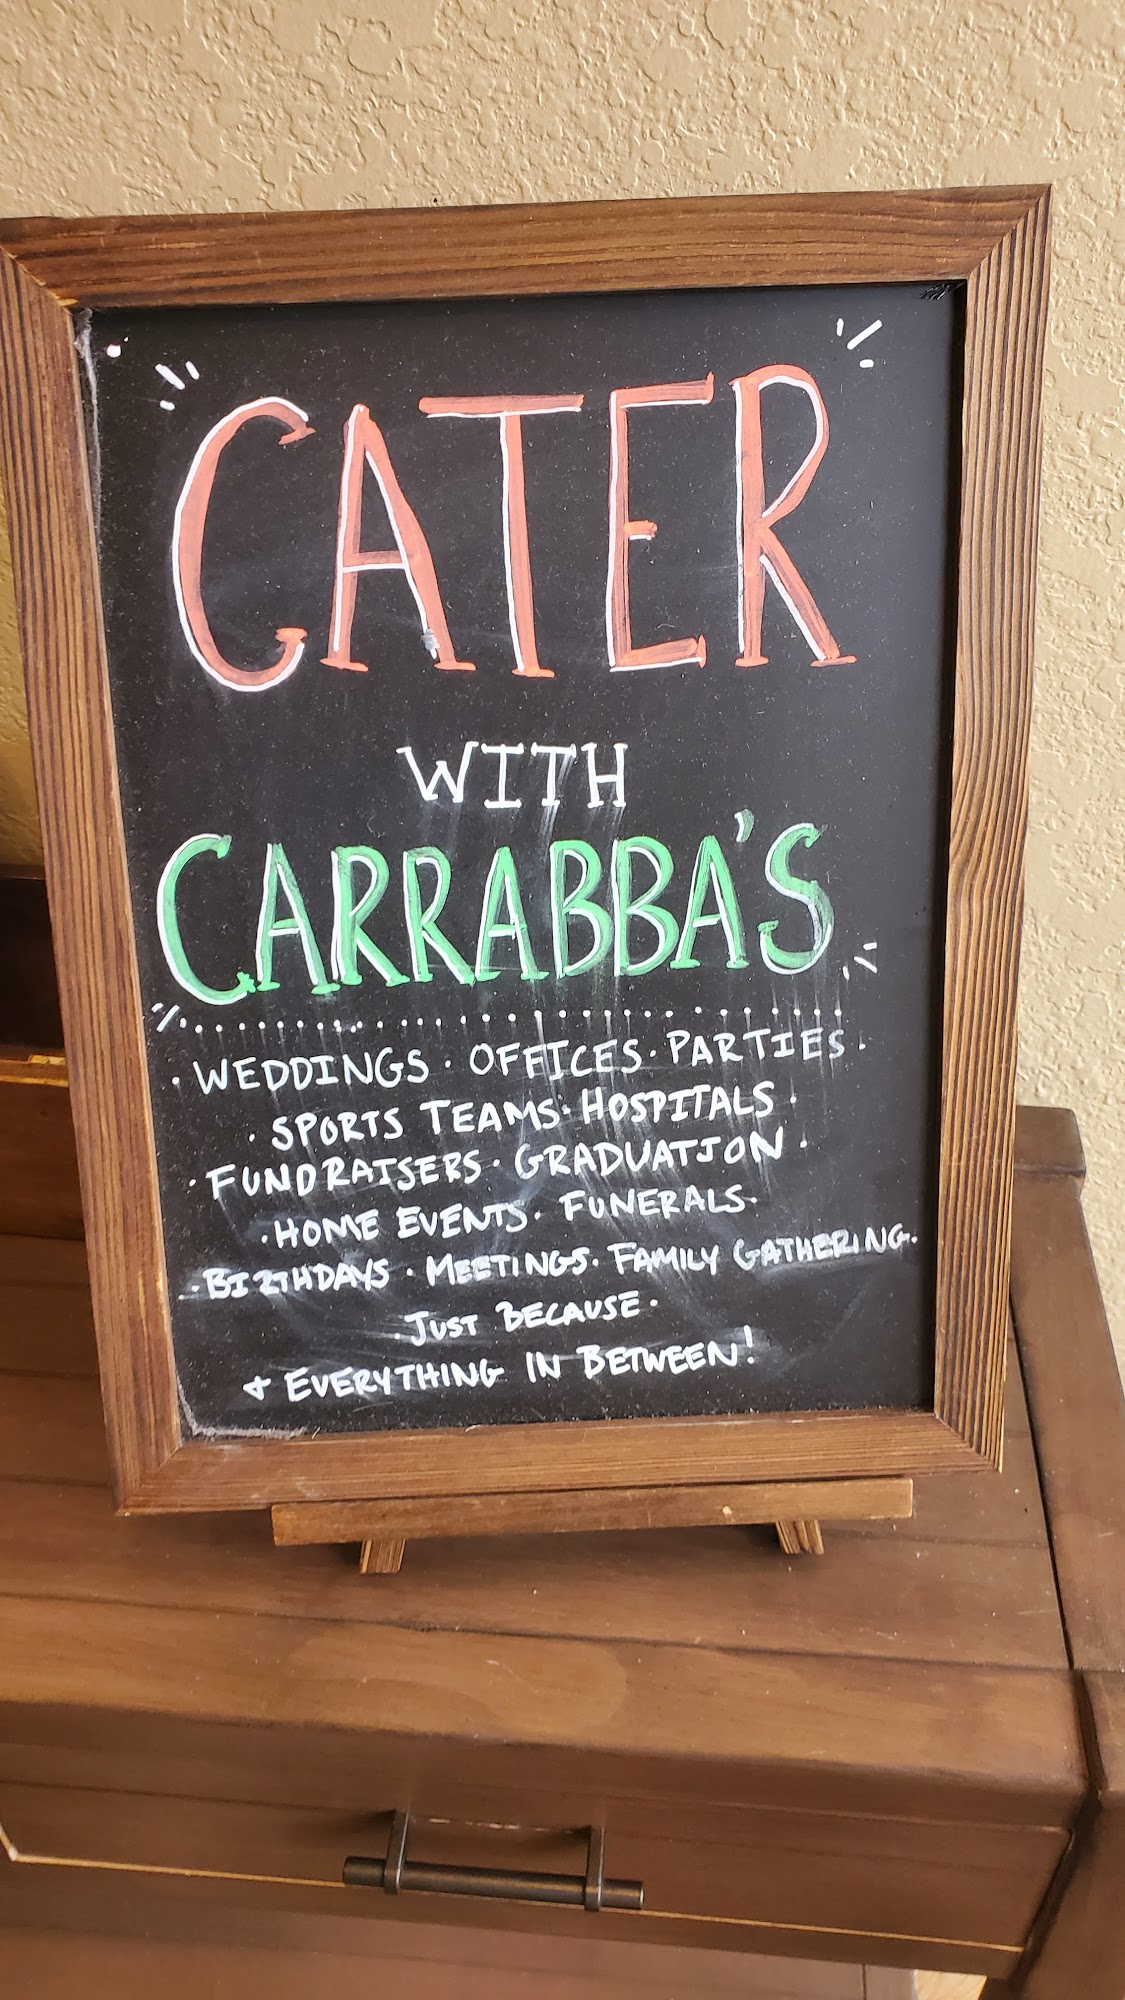 CATER
WITH
CARRABBA'S
· WEDDINGS · OFFICES · PARTIES ·
· SPORTS TEAMS · HOSPITALS ·
· FUNDRAISERS · GRADUATION ·
· HOME EVENTS · FUNERALS ·
· BIRTHDAYS · MEETINGS · FAMILY GATHERING ·
· JUST BECAUSE ·
+ EVERYTHING IN BETWEEN!